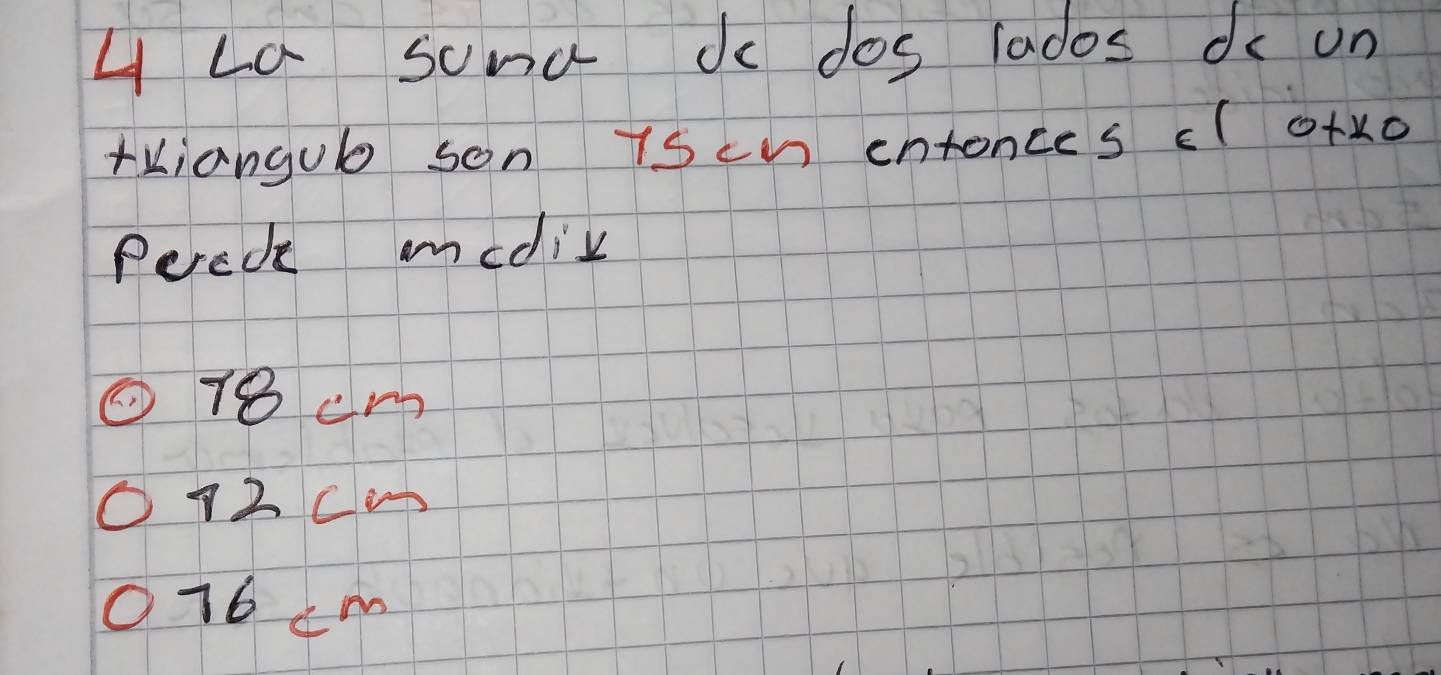 4 La suma de dos lados de un
triangulo son 15 cm entonces el otro
Puede medir
18 cm
12 cm
16 cm